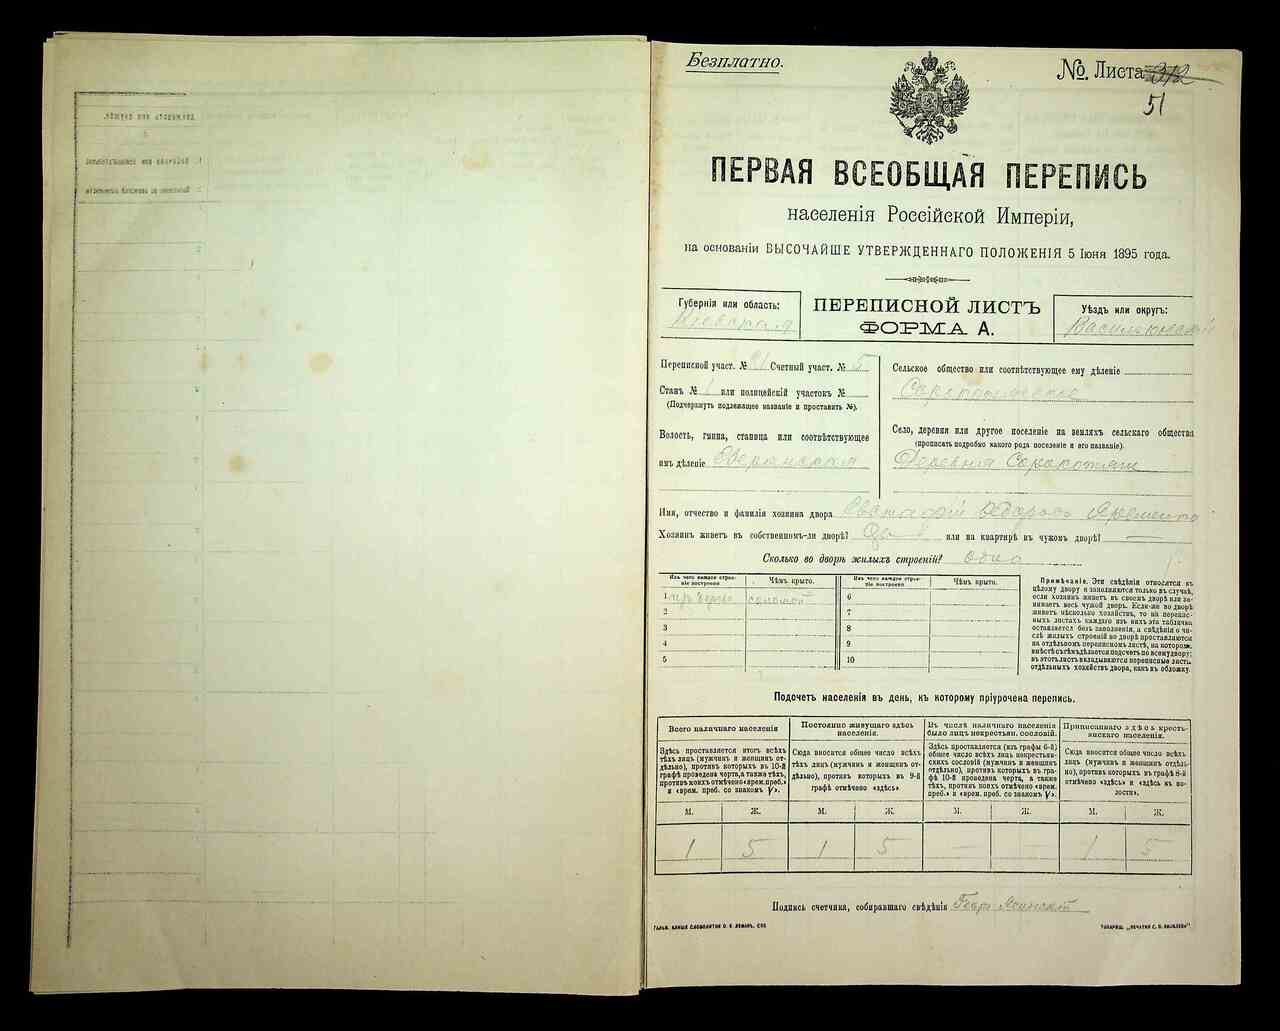 Безплатно.
№. Листа 312
51
ПЕРВАЯ ВСЕОБЩАЯ ПЕРЕПИСЬ
населенія Россійской Имперіи,
на основаніи ВЫСОЧАЙШЕ УТВЕРЖДЕННАГО ПОЛОЖЕНІЯ 5 Іюня 1895 года.
Губернія или область:
Кіевская
ПЕРЕПИСНОЙ ЛИСТЪ
ФОРМА А.
Уѣздъ или округъ:
Васильковскій
Переписной участ. № Счетный участ. № 5
Станъ № 1 или полицейскій участокъ №
(Подчеркнуть подлежащее названіе и проставить №).
Волость, гмина, станица или соотвѣтствующее
имъ дѣленіе
Сельское общество или соотвѣтствующее ему дѣленіе
Село, деревня или другое поселеніе на земляхъ сельскаго общества
(прописать подробно какого рода поселеніе и его названіе).
Деревня Сорокотяги
Имя, отчество и фамилія хозяина двора Евстафій Яременко
Хозяинъ живетъ въ собственномъ-ли дворѣ? Да или на квартирѣ въ чужомъ дворѣ? —
Сколько во дворѣ жилыхъ строеній? одно
Изъ чего каждое строе-
ніе построено
Чѣмъ крыто.
Изъ чего каждое строе-
ніе построено
Чѣмъ крыто.
1 соломой
2
3
4
5
6
7
8
9
10
Примѣчаніе. Эти свѣдѣнія относятся къ
цѣлому двору и заполняются только въ случаѣ,
если хозяинъ живетъ въ своемъ дворѣ или за-
нимаетъ весь чужой дворъ. Если-же во дворѣ
живетъ нѣсколько хозяйствъ, то на перепис-
ныхъ листахъ каждаго изъ нихъ эта табличка
оставляется безъ заполненія, а свѣдѣнія о чи-
слѣ жилыхъ строеній во дворѣ проставляются
на отдѣльномъ переписномъ листѣ, на которомъ
вмѣстѣ съ тѣмъ дѣлается подсчетъ по всему двору;
въ этотъ листъ вкладываются переписные листы
отдѣльныхъ хозяйствъ двора, какъ въ обложку.
Подсчетъ населенія въ день, къ которому пріурочена перепись.
Всего наличнаго населенія
Здѣсь проставляется итогъ всѣхъ
тѣхъ лицъ (мужчинъ и женщинъ от-
дѣльно), противъ которыхъ въ 10-й
графѣ проведена черта, а также тѣхъ,
противъ коихъ отмѣчено «врем. преб.»
и «врем. преб. со знакомъ V».
Постоянно живущаго здѣсь
населенія.
Сюда вносится общее число всѣхъ
тѣхъ лицъ (мужчинъ и женщинъ от-
дѣльно), противъ которыхъ въ 9-й
графѣ отмѣчено «здѣсь»
Въ числѣ наличнаго населенія
было лицъ некрестьян. сословій.
Здѣсь проставляется (изъ графы 6-й)
общее число всѣхъ лицъ некрестьян-
скихъ сословій (мужчинъ и женщинъ
отдѣльно), противъ которыхъ въ гра-
фѣ 10-й проведена черта, а также
тѣхъ, противъ коихъ отмѣчено «врем.
преб.» и «врем. преб. со знакомъ V».
Приписаннаго здѣсь кресть-
янскаго населенія.
Сюда вносится общее число всѣхъ
лицъ (мужчинъ и женщинъ отдѣль-
но), противъ которыхъ въ графѣ 8-й
отмѣчено «здѣсь» и «здѣсь къ во-
лости».
М. Ж. М. Ж. М. Ж. М. Ж.
1 5 1 5 — — 1 5
Подпись счетчика, собиравшаго свѣдѣнія